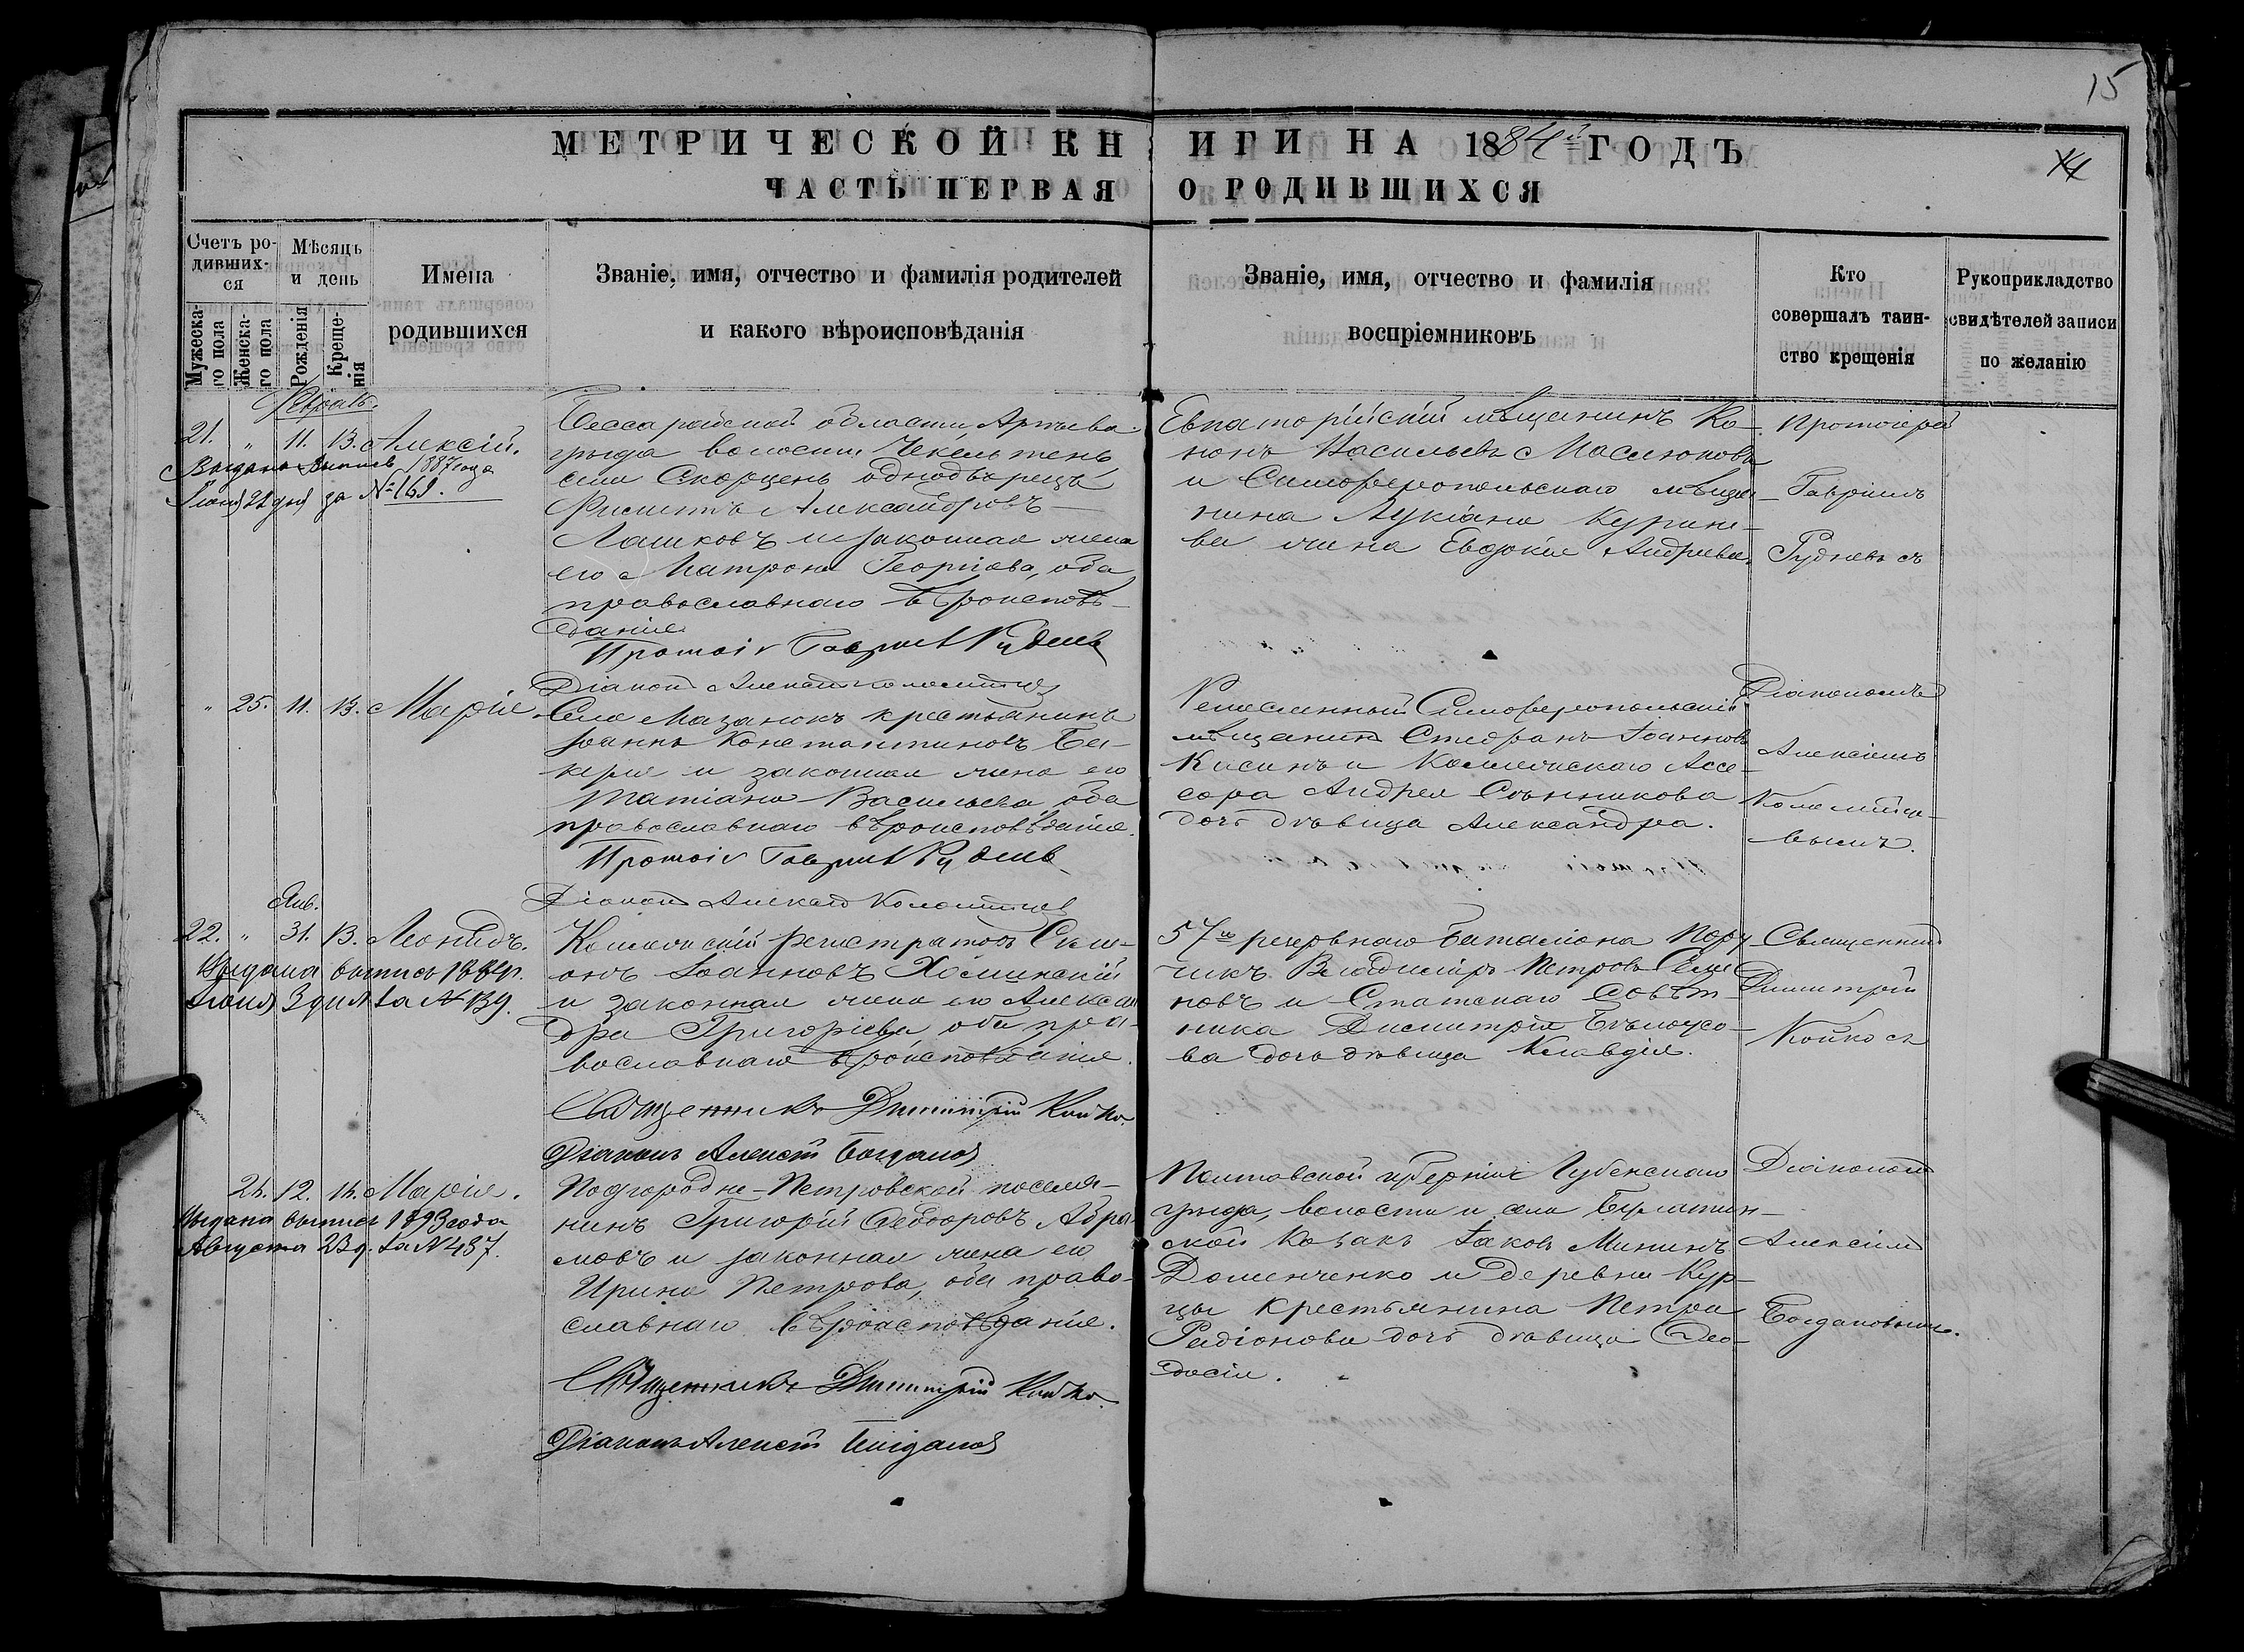 15
МЕТРИЧЕСКОЙ КНИГИ НА 1884й ГОДЪ
ЧАСТЬ ПЕРВАЯ О РОДИВШИХСЯ
Счетъ ро-
дивших-
ся
Мужеска-
го пола
Женска-
го пола
Мѣсяцъ
и день
Рожденія
Креще-
нія
Имена
родившихся
Званіе, имя, отчество и фамилія родителей
и какого вѣроисповѣданія
Званіе, имя, отчество и фамилія
воспріемниковъ
Кто
совершалъ таин-
ство крещенія
Рукоприкладство
свидѣтелей записи
по желанію
Февраль.
21. " 11. 13. Алексій.
Выдана выпись 1887 года
Іюня 22 дня за № 161.
Бессарабской области,
уѣзда волости
села Скорцень однодворецъ
Филиппъ Александровъ
Лашковъ и законная жена
его Матрона Георгіева, оба
православнаго вѣроисповѣ-
данія.
Протоі Гавріилъ Рудневъ
Діаконъ Алексій Коломійцев
Евпаторійскій мѣщанинъ Ко-
нонъ Васильевъ Маслюковъ
и Симферопольскаго мѣща-
нина Лукіана Курине-
ва жена Евдокія Андреева.
Протоіерей
Гавріилъ
Рудневъ съ
" 25. 11. 13. Марія
Села Мазанокъ крестьянинъ
Іоаннъ Константиновъ Ба-
керія и законная жена его
Татіана Васильева, оба
православнаго вѣроисповѣданія.
Протоі Гавріилъ Рудневъ
Діаконъ Алексій Коломійцев
Ремесленный Симферопольскій
мѣщанинъ Стефанъ Іоанновъ
Касинъ и Коллежскаго Ассе-
сора Андрея Сѣнникова
дочь дѣвица Александра.
Діакономъ
Алексіемъ
Коломійце-
вымъ.
Янв.
22. " 31. 13. Леонидъ.
Выдана выпись 1884г.
Іюня 3 дня за № 139.
Коллежскій регистраторъ Сем-
онъ Іоанновъ Холминскій
и законная жена его Алексан
дра Григорьева, оба пра-
вославнаго вѣроисповѣданія.
Священникъ Димитрій Койко.
Діаконъ Алексій Богданов
57го резервнаго баталіона Пору-
чикъ Владиміръ Петровъ Семе
новъ и Статскаго Совѣт-
ника Димитрія Бѣлоусо-
ва дочь дѣвица Клавдія.
Священник
Димитрій
Койко съ
24. 12. 14. Марія.
Выдана выпись 1893 года
Августа 23 д. за № 487.
Подгородне-Петровской поселя-
нинъ Григорій Ѳеодоровъ Абра-
мовъ и законная жена его
Ирина Петрова, оба право-
славнаго вѣроисповѣданія.
Священникъ Димитрій Койко.
Діаконъ Алексій Богданов
Полтавской губерніи Лубенскаго
уѣзда, волости и села
ской козакъ Іаковъ Мининъ
Доменченко и деревни Кур-
цы крестьянина Петра
Радіонова дочь дѣвица Ѳео-
досія.
Діаконом
Алексіем
Богдановымъ.